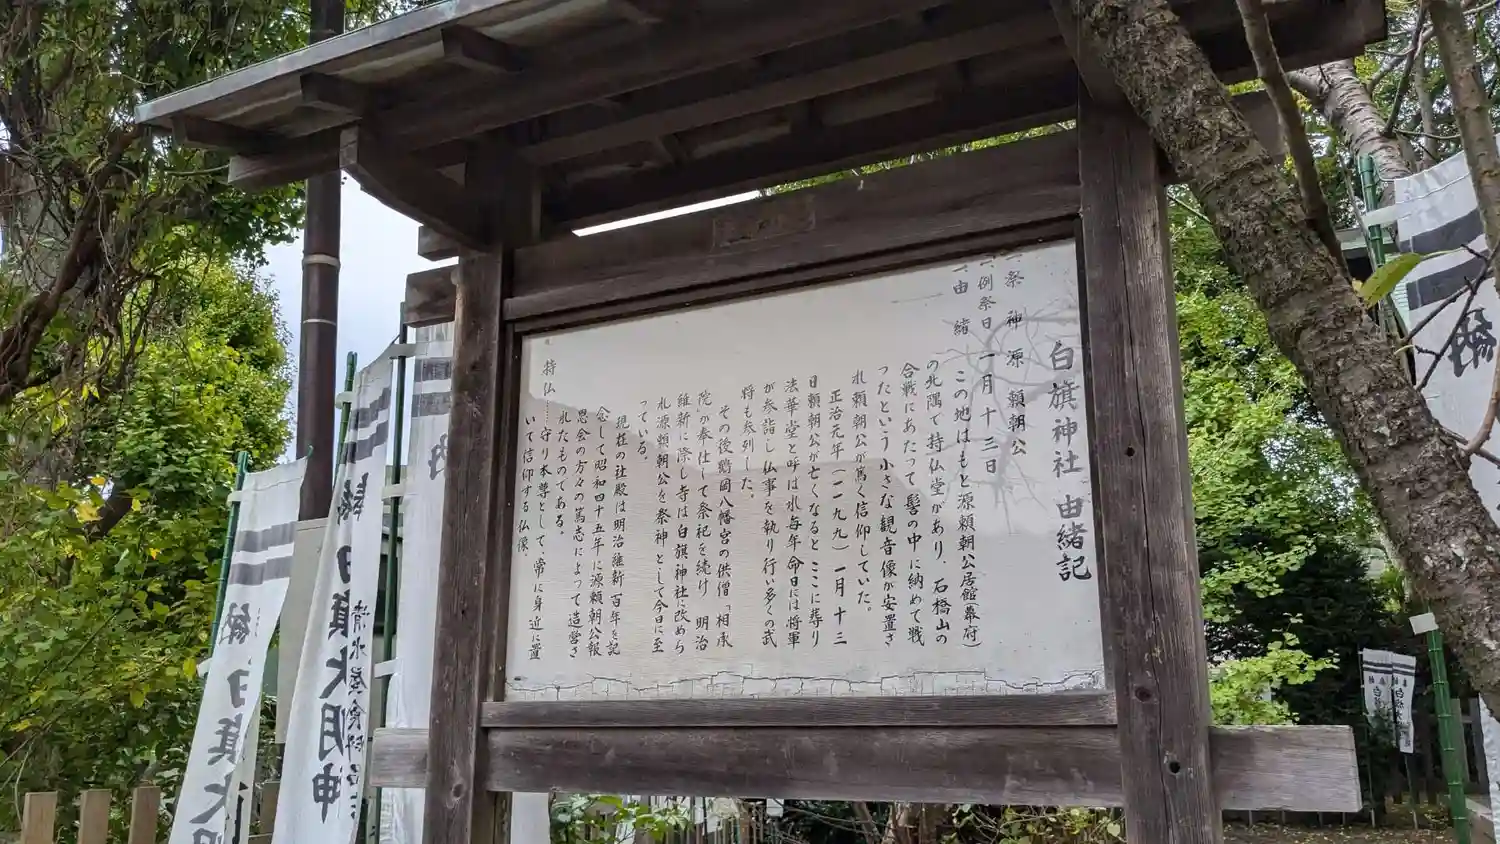 白旗神社 由緒記
一、祭神 源 頼朝公
一、例祭日 一月十三日
一、由緒 この地はもと源頼朝公居館(幕府)
の北隅で持仏堂があり、石橋山の
合戦にあたって髻の中に納めて戦
ったという小さな観音像が安置さ
れ頼朝公が篤く信仰していた。
正治元年(一一九九)一月十三
日頼朝公が亡くなるとここに葬り
法華堂と呼ばれ毎年命日には将軍
が参詣し仏事を執り行い多くの武
将も参列した。
その後鶴岡八幡宮の供僧「相承
院」が奉仕して祭祀を続け 明治
維新に際し寺は白旗神社に改めら
れ源頼朝公を祭神として今日に至
っている。
現在の社殿は明治維新百年を記
念して昭和四十五年に源頼朝公報
恩会の方々の篤志によって造営さ
れたものである。
持仏……守り本尊として、常に身近に置
いて信仰する仏像。
納
白旗大明神
清水屋食料品店
納
白旗大明
納
納